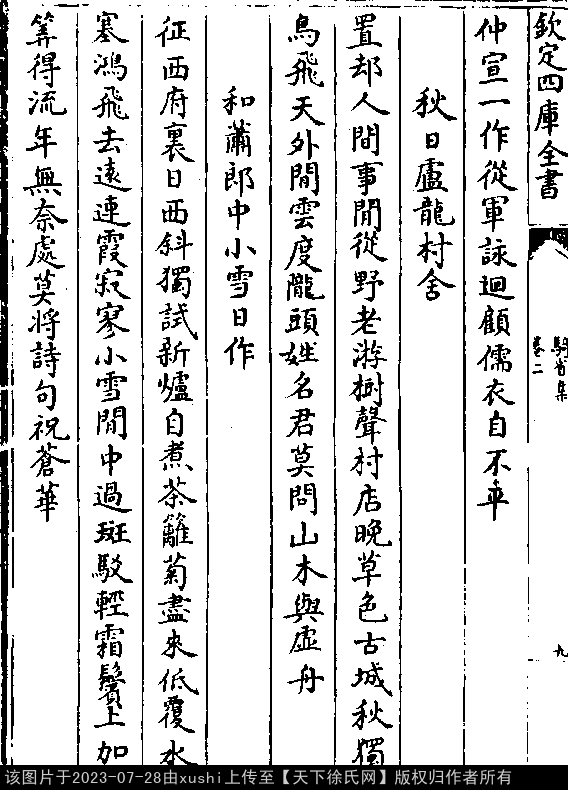 欽定四庫全書
騎省集
卷二
九
仲宣一作從軍詠迴顧儒衣自不平
秋日盧龍村舍
置却人間事閒從野老游樹聲村店晚草色古城秋獨
鳥飛天外閒雲度隴頭姓名君莫問山木與虛舟
和蕭郎中小雪日作
征西府裏日西斜獨試新爐自煮茶籬菊盡來低覆水
塞鴻飛去遠連霞寂寥小雪閒中過斑駁輕霜鬢上加
筭得流年無奈處莫將詩句祝蒼華
该图片于2023-07-28由xushi上传至【天下徐氏网】版权归作者所有